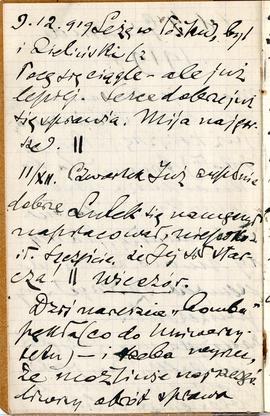 9.12.919 Leżę w łóżku, był
i Zieliński
Pocę się ciągle – ale już
lepiej. Serce dobrze już
się sprawia. Mija najgor-
sze?. ||
11/XII. Czwartek Już zupełnie
dobrze Lulek się
napracował,
it. Szczęście, że Jej sił star-
cza! || wieczór.
Dziś nareszcie „bomba"
pękła (co do Uniwersy-
tetu) – i trzeba
że możliwie
liwszy obrót sprawa